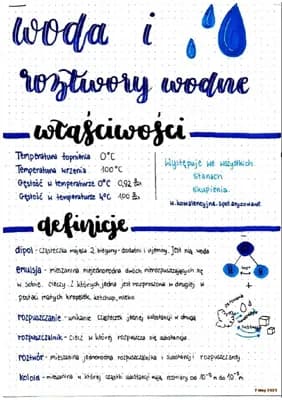 woda i
roztwory wodne
właściwości
Temperatura topnienia 0°C
Temperatura wrzenia 100°C
Gęstość w temperaturze 0°C 0,92
Gęstość w temperaturze 4°C 1,00
Występuje we wszystkich
stanach
skupienia.
w. kowalencyjne spolaryzowane
definicje
dipol - cząsteczka mająca 2 bieguny - dodatni i ujemny. Jest nią woda
emulsja - mieszanina niejednorodna dwóch nierozpuszczających się
w sobie cieczy. Z których jedna jest rozproszona w drugiej w
postaci małych kropelek. ketchup, mleko
rozpuszczanie - wnikanie cząsteczek jednej substancji w drugą
rozpuszczalnik - ciecz w której rozpuszcza się substancja.
roztwór - mieszanina jednorodna rozpuszczalnika i substancji rozpuszczonej
koloid - mieszanina w której cząstki substancji mają rozmiary od 10⁻⁹m do 10⁻⁷m